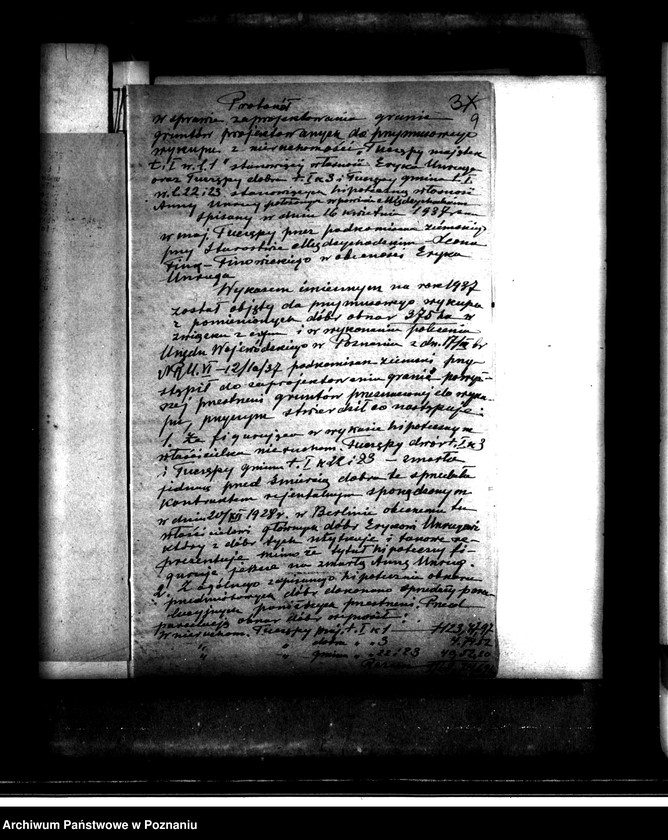 Protokół 37
9
w sprawie zaprojektowania granic
gruntów projektowanych do przymusowego
wykupu z nieruchomości „Tuczępy majątek
t. I w. l. 1 stanowiącej własność Eryka Unruga
oraz Tuczępy dobra t. I k 3 i Tuczępy gmina t. I
w. l. 22 i 23 stanowiących hipoteczną własność
Anny Unrug położonych w powiecie Międzychodzkim
Spisany w dniu 16 kwietnia 1937 roku
w maj. Tuczępy przez podkomisarza ziemskiego
przy Starostwie Międzychodzkim – Leona
Finowickiego w obecności Eryka
Unruga
Wykazem imiennym na rok 1937
został objęty do przymusowego wykupu
z pomienionych dóbr obszar 375 ha w
związku z czym i w wykonaniu polecenia
Urzędu Wojewódzkiego w Poznaniu z dn. br
No R.U. VI – 12/10/37 podkomisarz ziemski przy-
stąpił do zaprojektowania granic powyż-
szej przestrzeni gruntów przeznaczonej do wyku-
pu, przyczym stwierdził co następuje:
1. Że figurująca w wykazie hipotecznym
właścicielka nieruchom. Tuczępy dwór t. I k 3
i Tuczępy gmina t. I k 22 i 23 – zmarła
jednak przed śmiercią dobra te sprzedała
kontraktem rejentalnym sporządzonym
w dniu 20/XII 1928 r. w Berlinie obecnemu
właścicielowi głównych dóbr Erykowi Unrugowi
który z dóbr tych użytkuje i takowe re-
prezentuje mimo że tytuł hipoteczny fi-
guruje jeszcze na zmarłą Annę Unrug.
2. Z ogólnego zapisanego hipotecznie obszaru
przedmiotowych dóbr dokonano sprzedaży parce-
lacyjnych poniższych przestrzeni. Przed
parcelacją obszar dóbr wynosił:
w nieruchom. Tuczępy maj. t. I k 1 — 1123,47,97
„ „ dobra „ „ 3
„ „ gmina „ „ 22 i 23
Razem
Archiwum Państwowe w Poznaniu